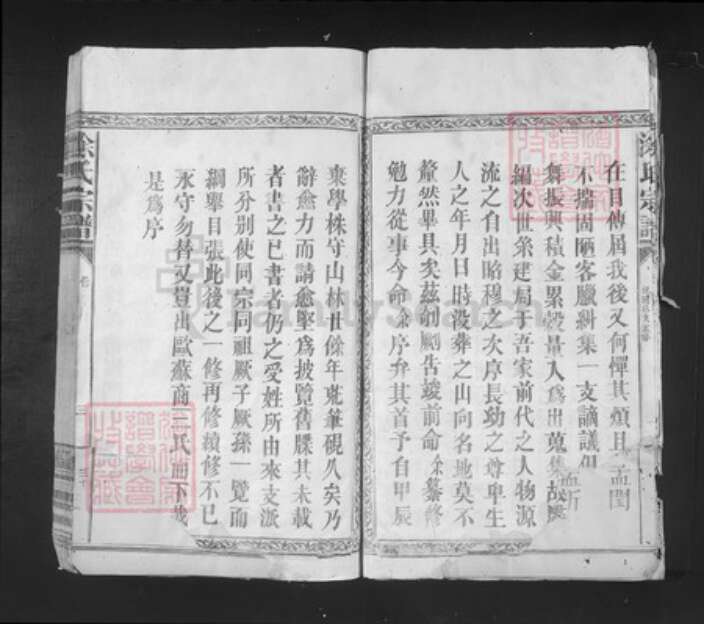 在目傳屆我後又何憚其煩且孟閏
不揣固陋客臘糾集一支議
舞振興積金累穀量入為出蒐集故
編次世系建局于吾家前代之人物源
流之自出昭穆之次序長幼之尊卑生
人之年月日時沒葬之山向名地莫不
釐然畢具矣茲剞劂告竣前命余纂修
勉力從事今命余序弁其首予自甲辰
棄學株守山林廿餘年荒筆硯久矣乃
辭愈力而請愈堅為披覽舊牒其未載
者書之已書者仍之受姓所由來支派
所分別使同宗同祖厥子厥孫一覽而
綱舉目張此後之一修再修續修不已
永守勿替又豈出歐蘇商三氏而下哉
是為序
涂氏宗譜
卷